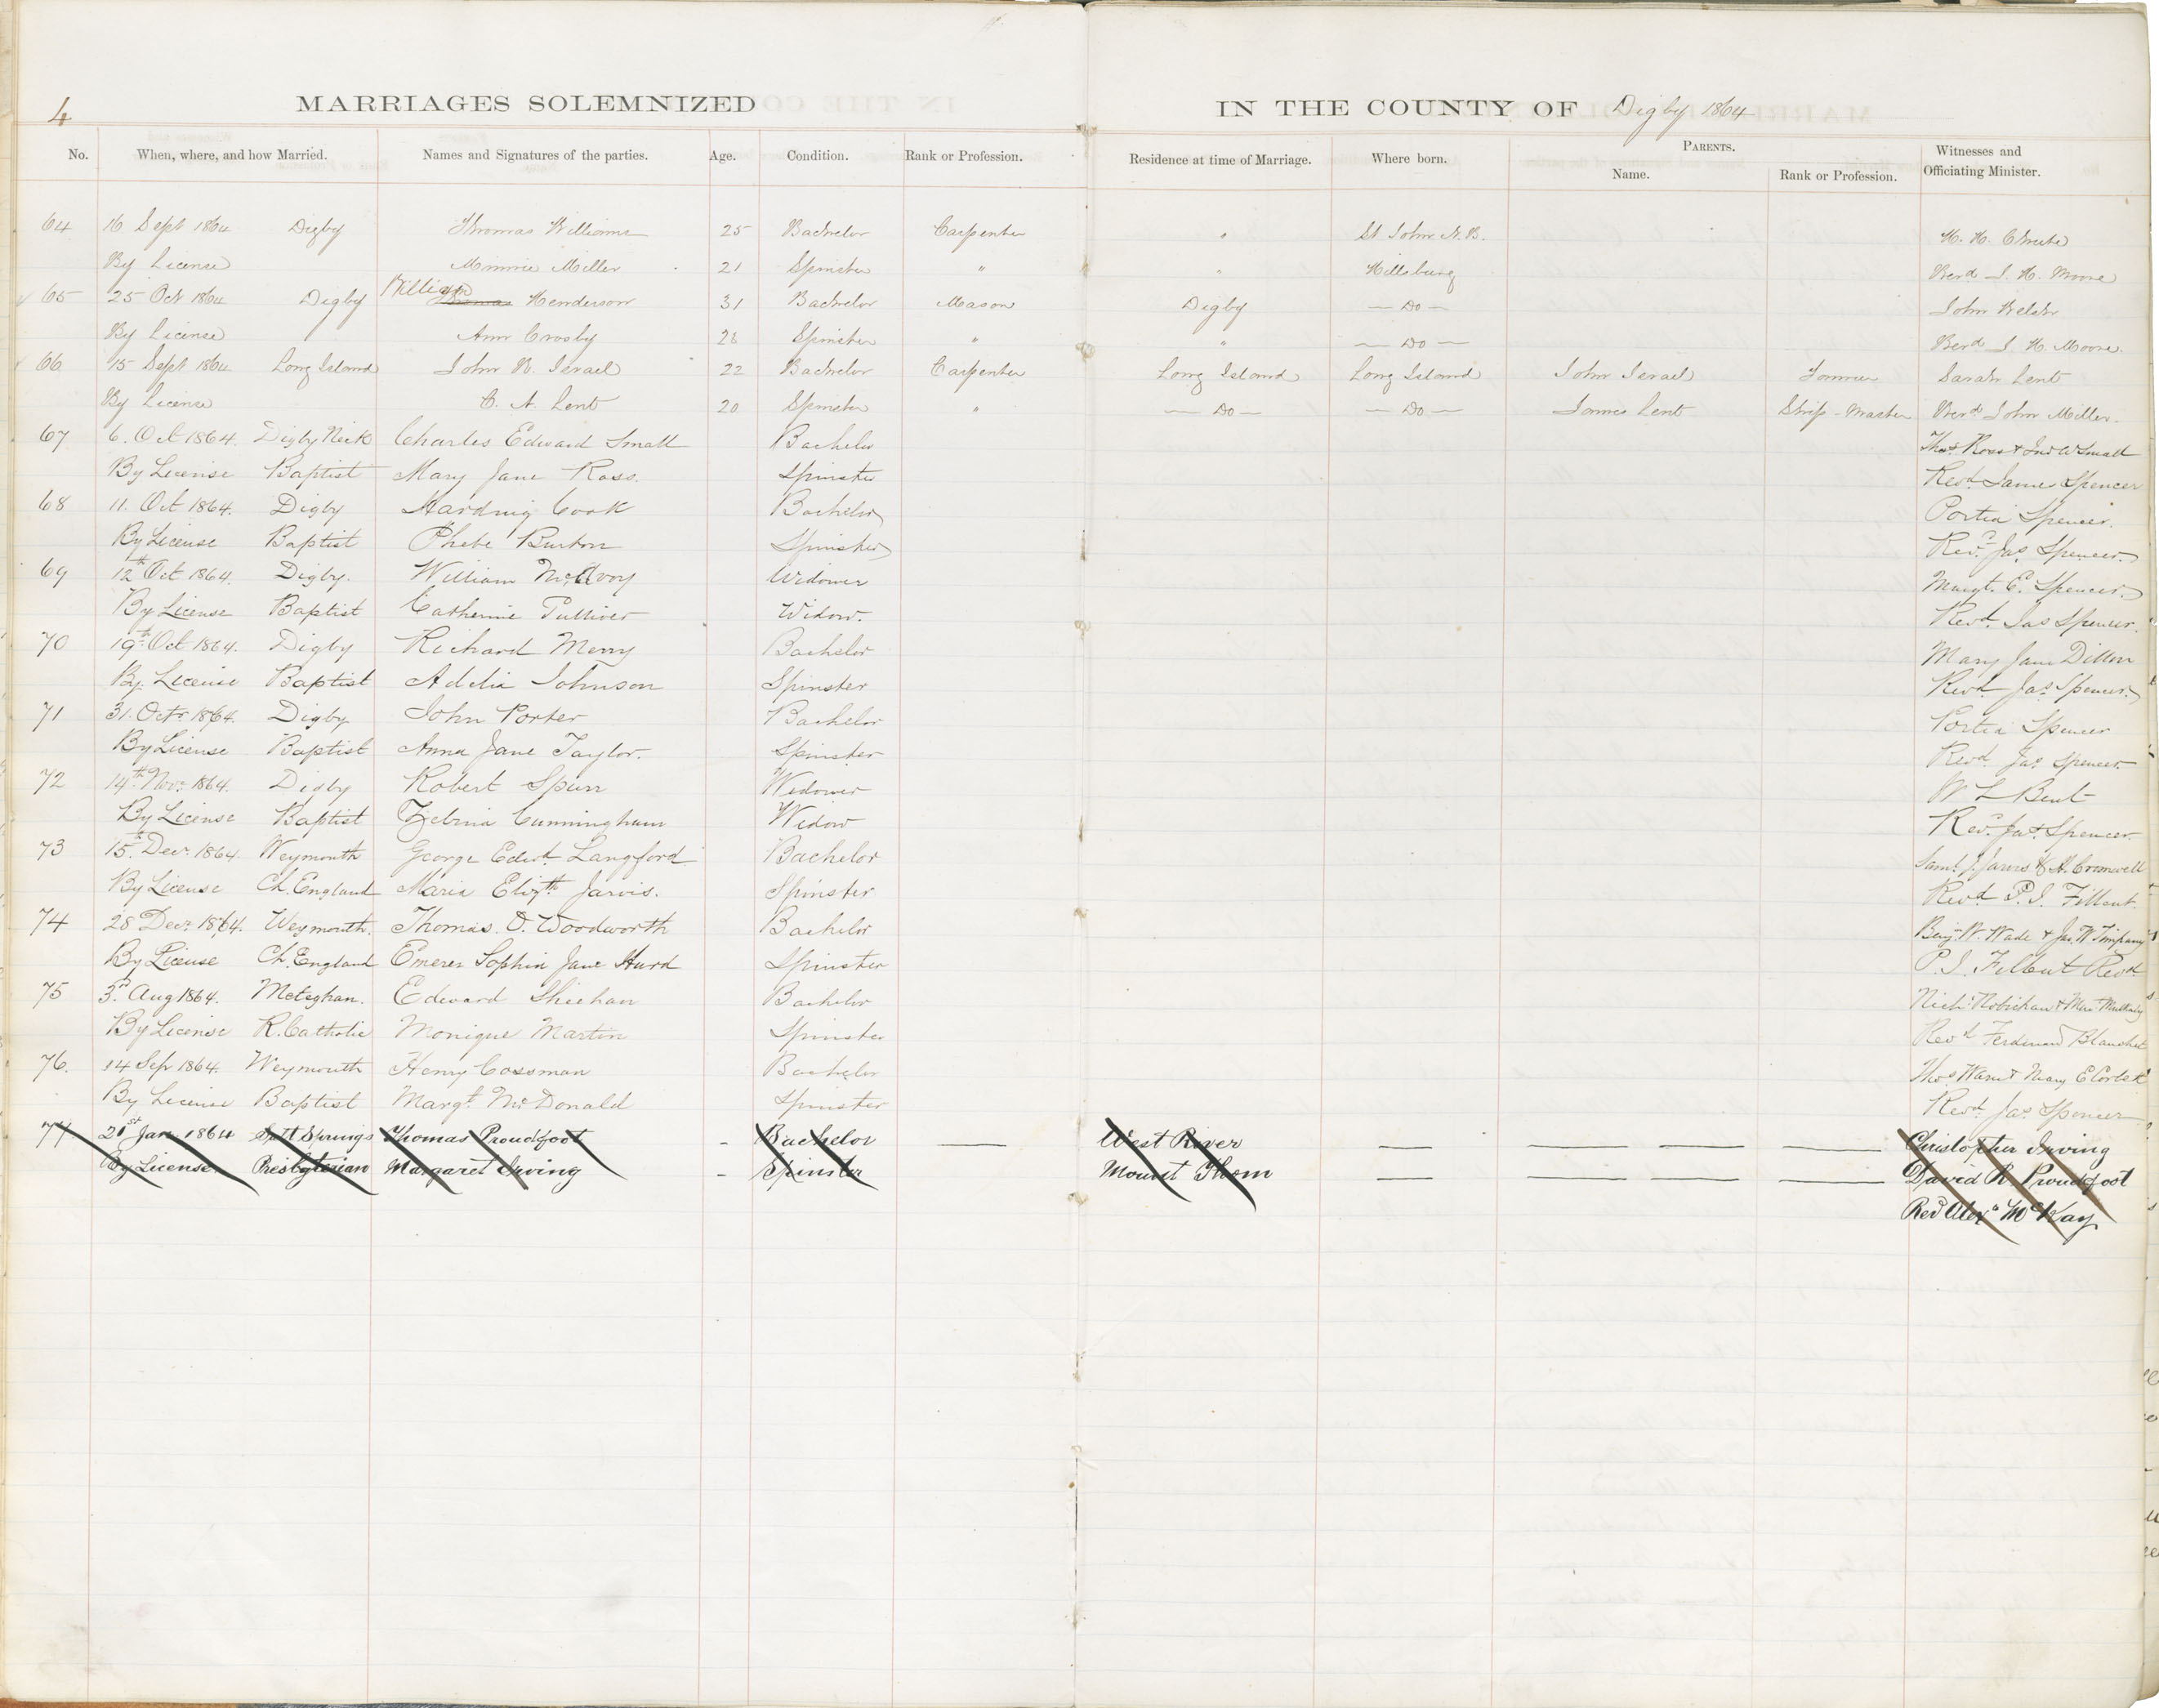 4
MARRIAGES SOLEMNIZED IN THE COUNTY OF Digby 1864
No. When, where, and how Married. Names and Signatures of the parties. Age. Condition. Rank or Profession. Residence at time of Marriage. Where born. PARENTS. Name. Rank or Profession. Witnesses and Officiating Minister.
64 16 Sept 1864 Digby Thomas Williams 25 Bachelor Carpenter " St John N.B. H. H. Chute
By License Minnie Miller 21 Spinster " " Hillsburg Revd J. H. Moore
65 25 Oct 1864 Digby William Thomas Henderson 31 Bachelor Mason Digby — Do — John Welsh
By License Ann Crosby 28 Spinster " " — Do — Revd J. H. Moore.
66 15 Sept 1864 Long Island John N. Israel 22 Bachelor Carpenter Long Island Long Island John Israel Sarah Lent
By License C. A. Lent 20 Spinster " — Do — — Do — James Lent Ship-Master Revd John Miller.
67 6. Oct 1864. Digby Neck Charles Edward Small Bachelor Thos. Ross & Jno W Small
By License Baptist Mary Jane Ross. Spinster Revd James Spencer
68 11. Oct 1864. Digby Harding Cook Bachelor Portia Spencer.
By License Baptist Phebe Burton Spinster Revd. Jas Spencer
69 12th Oct. 1864. Digby. William McAvoy Widower Margt. E. Spencer
By License Baptist Catherine Widow. Revd. Jas Spencer.
70 19th Oct 1864. Digby Richard Merry Bachelor Mary Jane Dillon
By License Baptist Adelia Johnson Spinster Revd. Jas. Spencer
71 31. Octr 1864. Digby John Porter Bachelor Portia Spencer
By License Baptist Anna Jane Taylor. Spinster Revd. Jas. Spencer
72 14th Novr 1864. Digby Robert Spurr Widower W L Bent
By License Baptist Zebina Cunningham Widow Revd. Jas. Spencer
73 15th Decr. 1864. Weymouth George Edwd. Langford Bachelor Saml. J. Jarvis & H. Cromwell
By License Ch. England Maria Elizth Jarvis. Spinster Revd P. J. Filleul.
74 28 Decr. 1864. Weymouth. Thomas. O. Woodworth Bachelor Benj. W. Wade & Jas. W Timpany
By License Ch. England Emerer Sophia Jane Hurd Spinster P. J. Filleul Revd
75 3rd Aug 1864. Meteghan. Edward Sheehan Bachelor Nichs Robichau &
By License R. Catholic Monique Martin Spinster Revd Ferdinand Blanchet
76. 14 Sep 1864. Weymouth Henry Cossman Bachelor Thos & Mary E
By License Baptist Margt. McDonald Spinster Revd. Jas. Spencer
77 21st Jan 1864 Salt Springs Thomas Proudfoot - Bachelor — West River — — — — Christopher Irving
By License. Presbyterian Margaret Irving - Spinster Mount Thom — — — — David R Proudfoot
Revd Alexr McKay